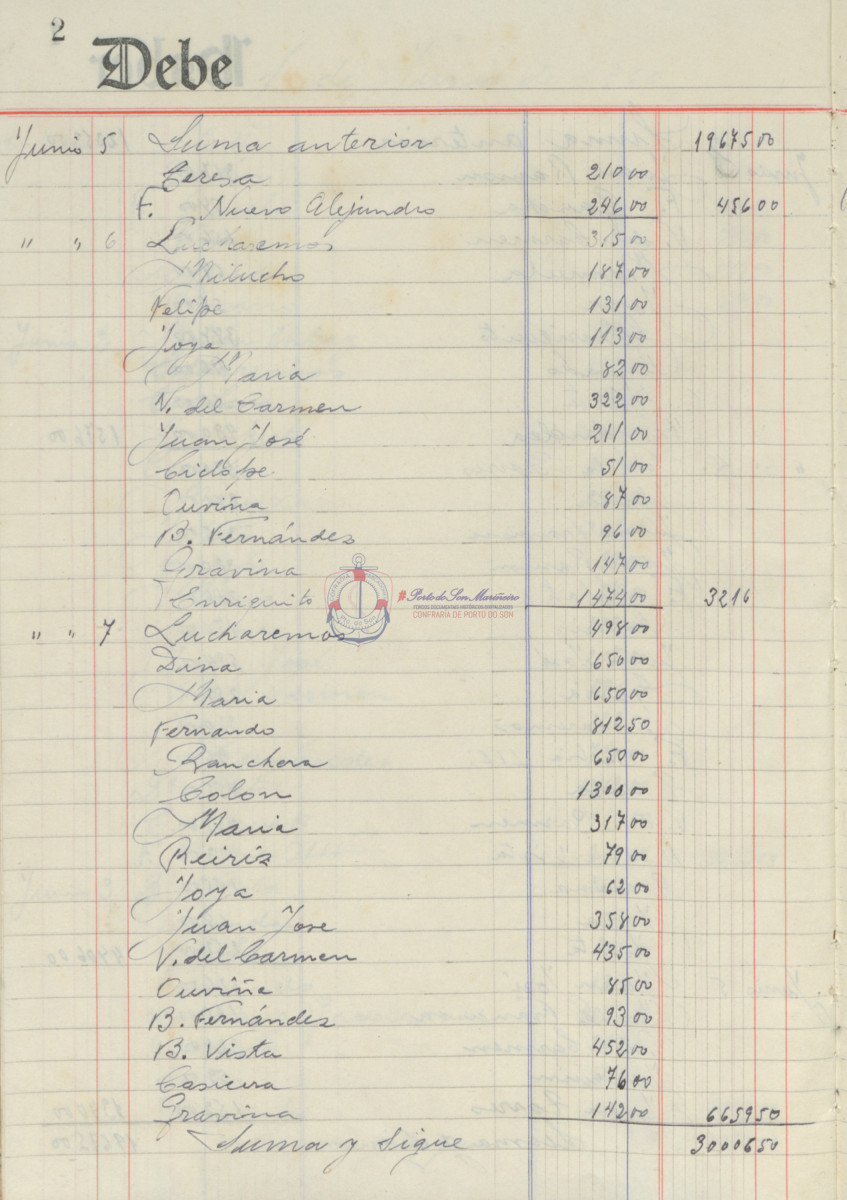 2
Debe
Junio 5 Suma anterior 19675 00
Teresa 210 00
F. Nuevo Alejandro 246 00 456 00
" " 6 Lucharemos 315 00
Milucho 187 00
Felipe 131 00
Joya 113 00
Maria 82 00
V. del Carmen 322 00
Juan José 211 00
Ciclópe 51 00
Ouviña 87 00
B. Fernández 96 00
Gravina 147 00
Enriquito 1474 00 3216
#Porto do Son Mariñeiro
FONDOS DOCUMENTAIS HISTÓRICOS DIXITALIZADOS
CONFRARÍA DE PORTO DO SON
Pto. do Son
" " 7 Lucharemos 498 00
Dina 650 00
Maria 650 00
Fernando 812 50
Ranchera 650 00
Colon 1300 00
Maria 317 00
Reiriz 79 00
Joya 62 00
Juan Jose 358 00
V. del Carmen 435 00
Ouviña 85 00
B. Fernández 93 00
B. Vista 452 00
Casicera 76 00
Gravina 142 00 6659 50
Suma y Sigue 30006 50